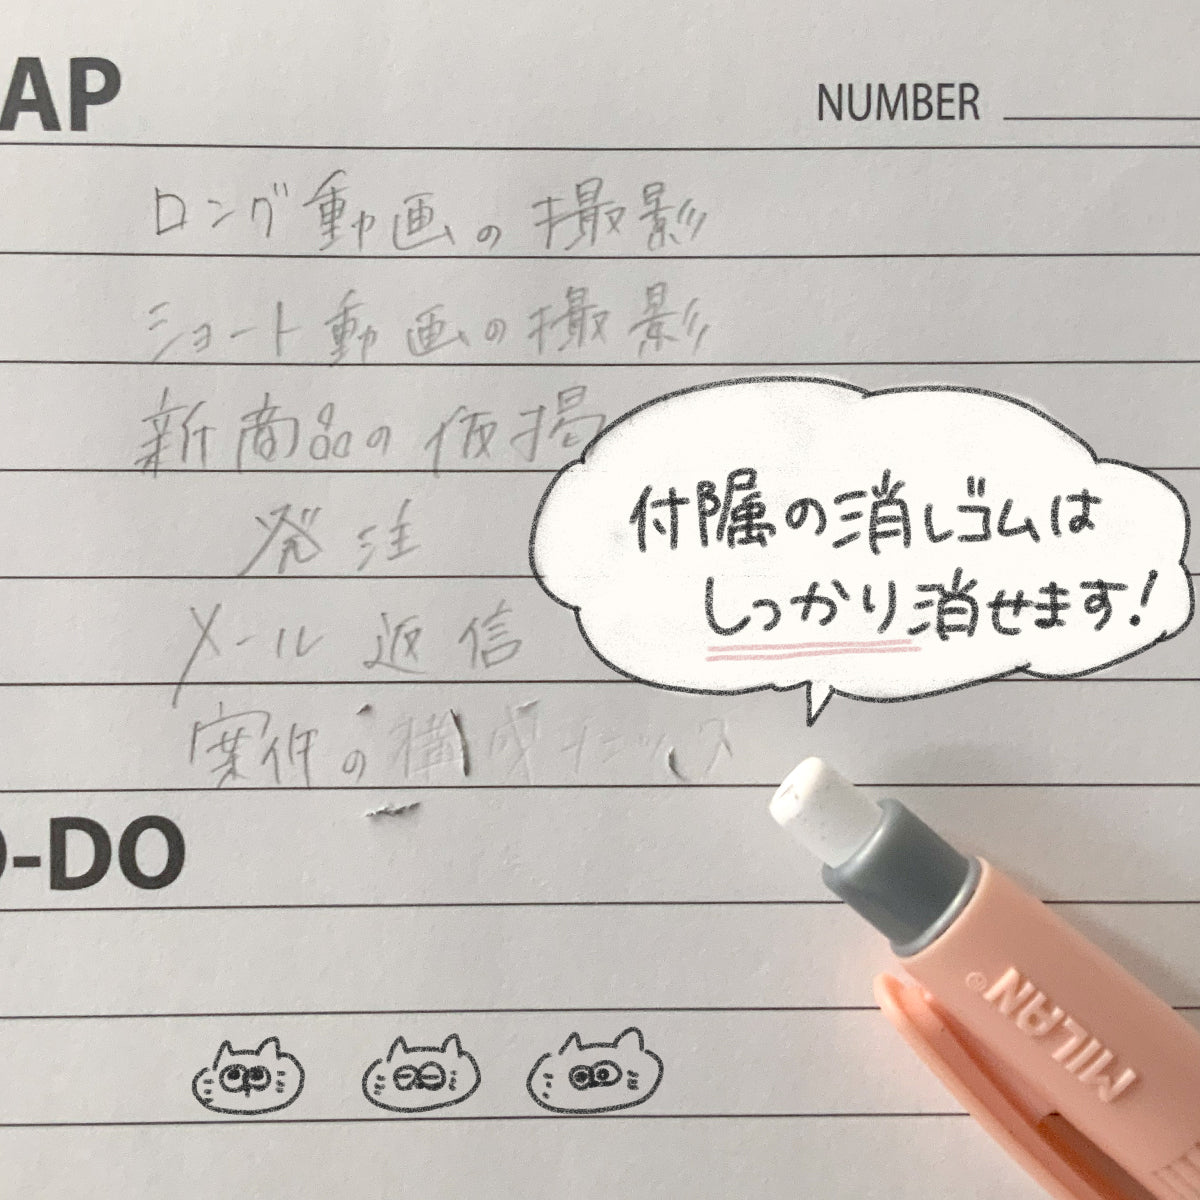 AP
NUMBER
ロング動画の撮影
ショート動画の撮影
新商品の仮掲
発注
メール返信
案件の構成チェックス
付属の消しゴムは
しっかり消せます!
O-DO
MILAN®